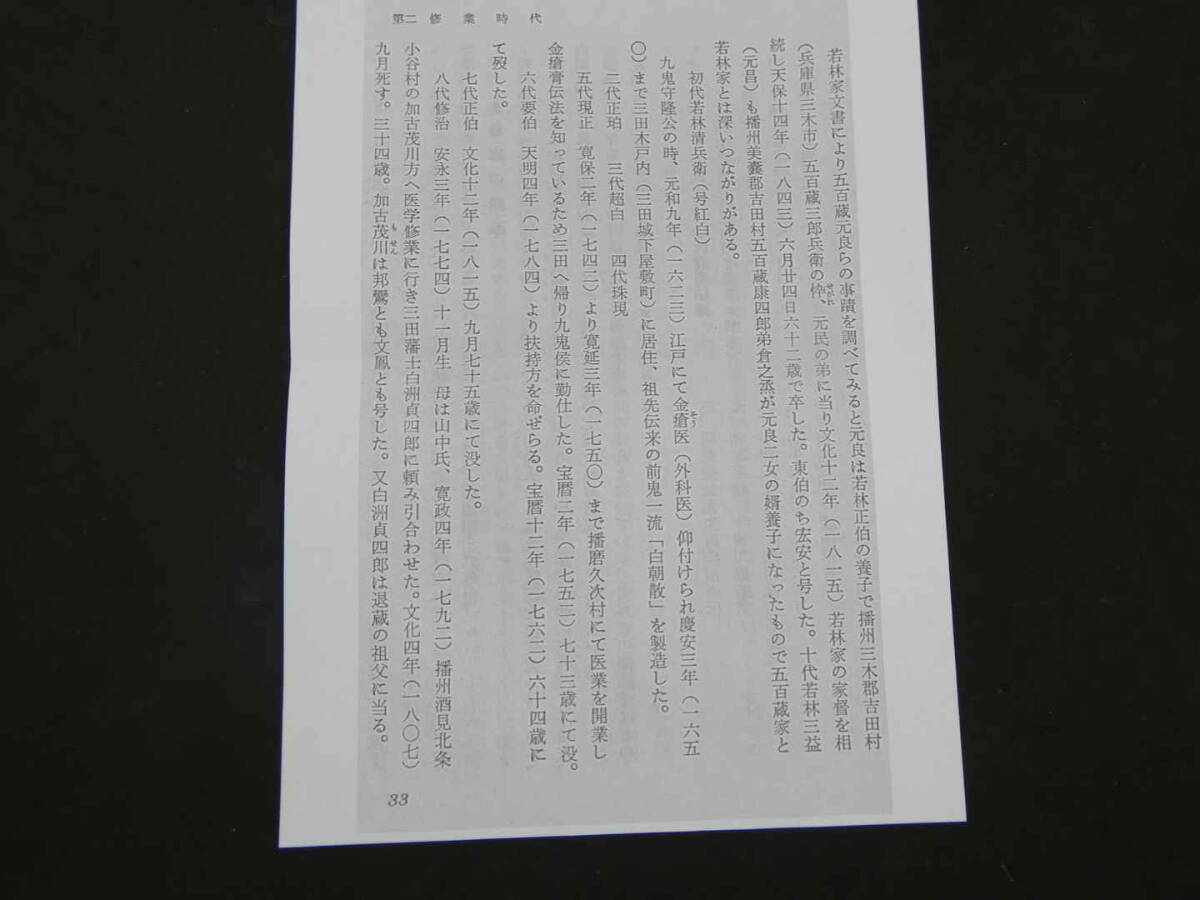 第二 修業時代
若林家文書により五百蔵元良らの事蹟を調べてみると元良は若林正伯の養子で播州三木郡吉田村
（兵庫県三木市）五百蔵三郎兵衛の忰、元民の弟に当り文化十二年（一八一五）若林家の家督を相
せがれ
続し天保十四年（一八四三）六月廿四日六十二歳で卒した。東伯のち宏安と号した。十代若林三益
（元昌）も播州美嚢郡吉田村五百蔵康四郎弟倉之烝が元良二女の婿養子になったもので五百蔵家と
若林家とは深いつながりがある。
初代若林清兵衛（号紅白）
九鬼守隆公の時、元和九年（一六二三）江戸にて金瘡医（外科医）仰付けられ慶安三年（一六五
そう
〇）まで三田木戸内（三田城下屋敷町）に居住、祖先伝来の前鬼一流「白朝散」を製造した。
二代正珀 三代超白 四代珠現
五代現正 寛保二年（一七四二）より寛延三年（一七五〇）まで播磨久次村にて医業を開業し
金瘡膏伝法を知っているため三田へ帰り九鬼侯に勤仕した。宝暦二年（一七五二）七十三歳にて没。
六代要伯 天明四年（一七八四）より扶持方を命ぜらる。宝暦十二年（一七六二）六十四歳に
て歿した。
七代正伯 文化十二年（一八一五）九月七十五歳にて没した。
八代修治 安永三年（一七七四）十一月生 母は山中氏、寛政四年（一七九二）播州酒見北条
小谷村の加古茂川方へ医学修業に行き三田藩士白洲貞四郎に頼み引合わせた。文化四年（一八〇七）
九月死す。三十四歳。加古茂川は邦鸞とも文鳳とも号した。又白洲貞四郎は退蔵の祖父に当る。
もせん
33